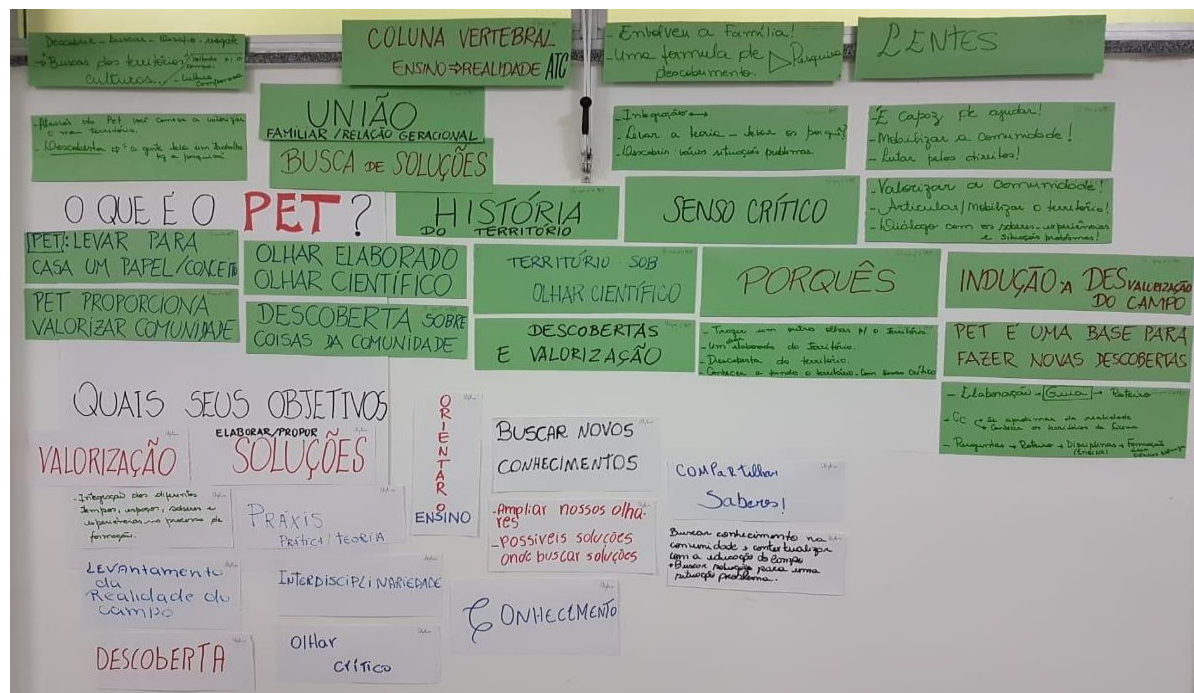 Descobrir - buscar - Desafio - resgate
Buscas dos territórios
culturas.
COLUNA VERTEBRAL
ENSINO⇒REALIDADE ATC
- Envolveu a Família!
- Uma formula de ▷ Pesquisa
descobrimento.
LENTES
- Através do Pet você começa a valorizar
o meu território.
- Descoberta
UNIÃO
FAMILIAR/RELAÇÃO GERACIONAL
BUSCA DE SOLUÇÕES
- Integração ↔
- Levar a teoria - levar os porquê?
- Descobrir vários situações problemas
- É capaz de ajudar!
- Mobilizar a Comunidade!
- Lutar pelos direitos!
O QUE É O PET?
HISTÓRIA
DO TERRITÓRIO
SENSO CRÍTICO
- Valorizar a Comunidade!
- Articular/Mobilizar o território!
- Diálogo com os saberes-experiências
e situações problemas!
PET: LEVAR PARA
CASA UM PAPEL/CONCEITO
OLHAR ELABORADO
OLHAR CIENTÍFICO
TERRITÓRIO SOB
OLHAR CIENTÍFICO
PORQUÊS
INDUÇÃO A DESVALORIZAÇÃO
DO CAMPO
PET PROPORCIONA
VALORIZAR COMUNIDADE
DESCOBERTA SOBRE
COISAS DA COMUNIDADE
DESCOBERTAS
E VALORIZAÇÃO
- Trazer um outro olhar p/ o território
- Um elaborado do território.
- Descoberta do território.
- Conhecer a fundo o território - com senso crítico
PET É UMA BASE PARA
FAZER NOVAS DESCOBERTAS
- Elaboração → Guia → Roteiro
- CC Se aproximar da realidade
Conhecer os territórios
- Perguntas → Roteiro → Disciplinas → Formação
QUAIS SEUS OBJETIVOS
VALORIZAÇÃO
ELABORAR/PROPOR
SOLUÇÕES
ORIENTAR O
ENSINO
BUSCAR NOVOS
CONHECIMENTOS
COMPARTILHAR
Saberes!
- Integração dos diferentes
tempos, espaços, saberes e
experiências no processo de
formação.
PRÁXIS
PRÁTICA/TEORIA
- Ampliar nossos olha-
res
- Possiveis soluções
onde buscar soluções
Buscar conhecimento na
comunidade e contextualizar
com a educação do Campo
• Buscar soluções para uma
situação problema.
LEVantamento
da
Realidade do
campo
INTERDISCIPLINARIEDADE
CONHECIMENTO
DESCOBERTA
OlHar
crítico